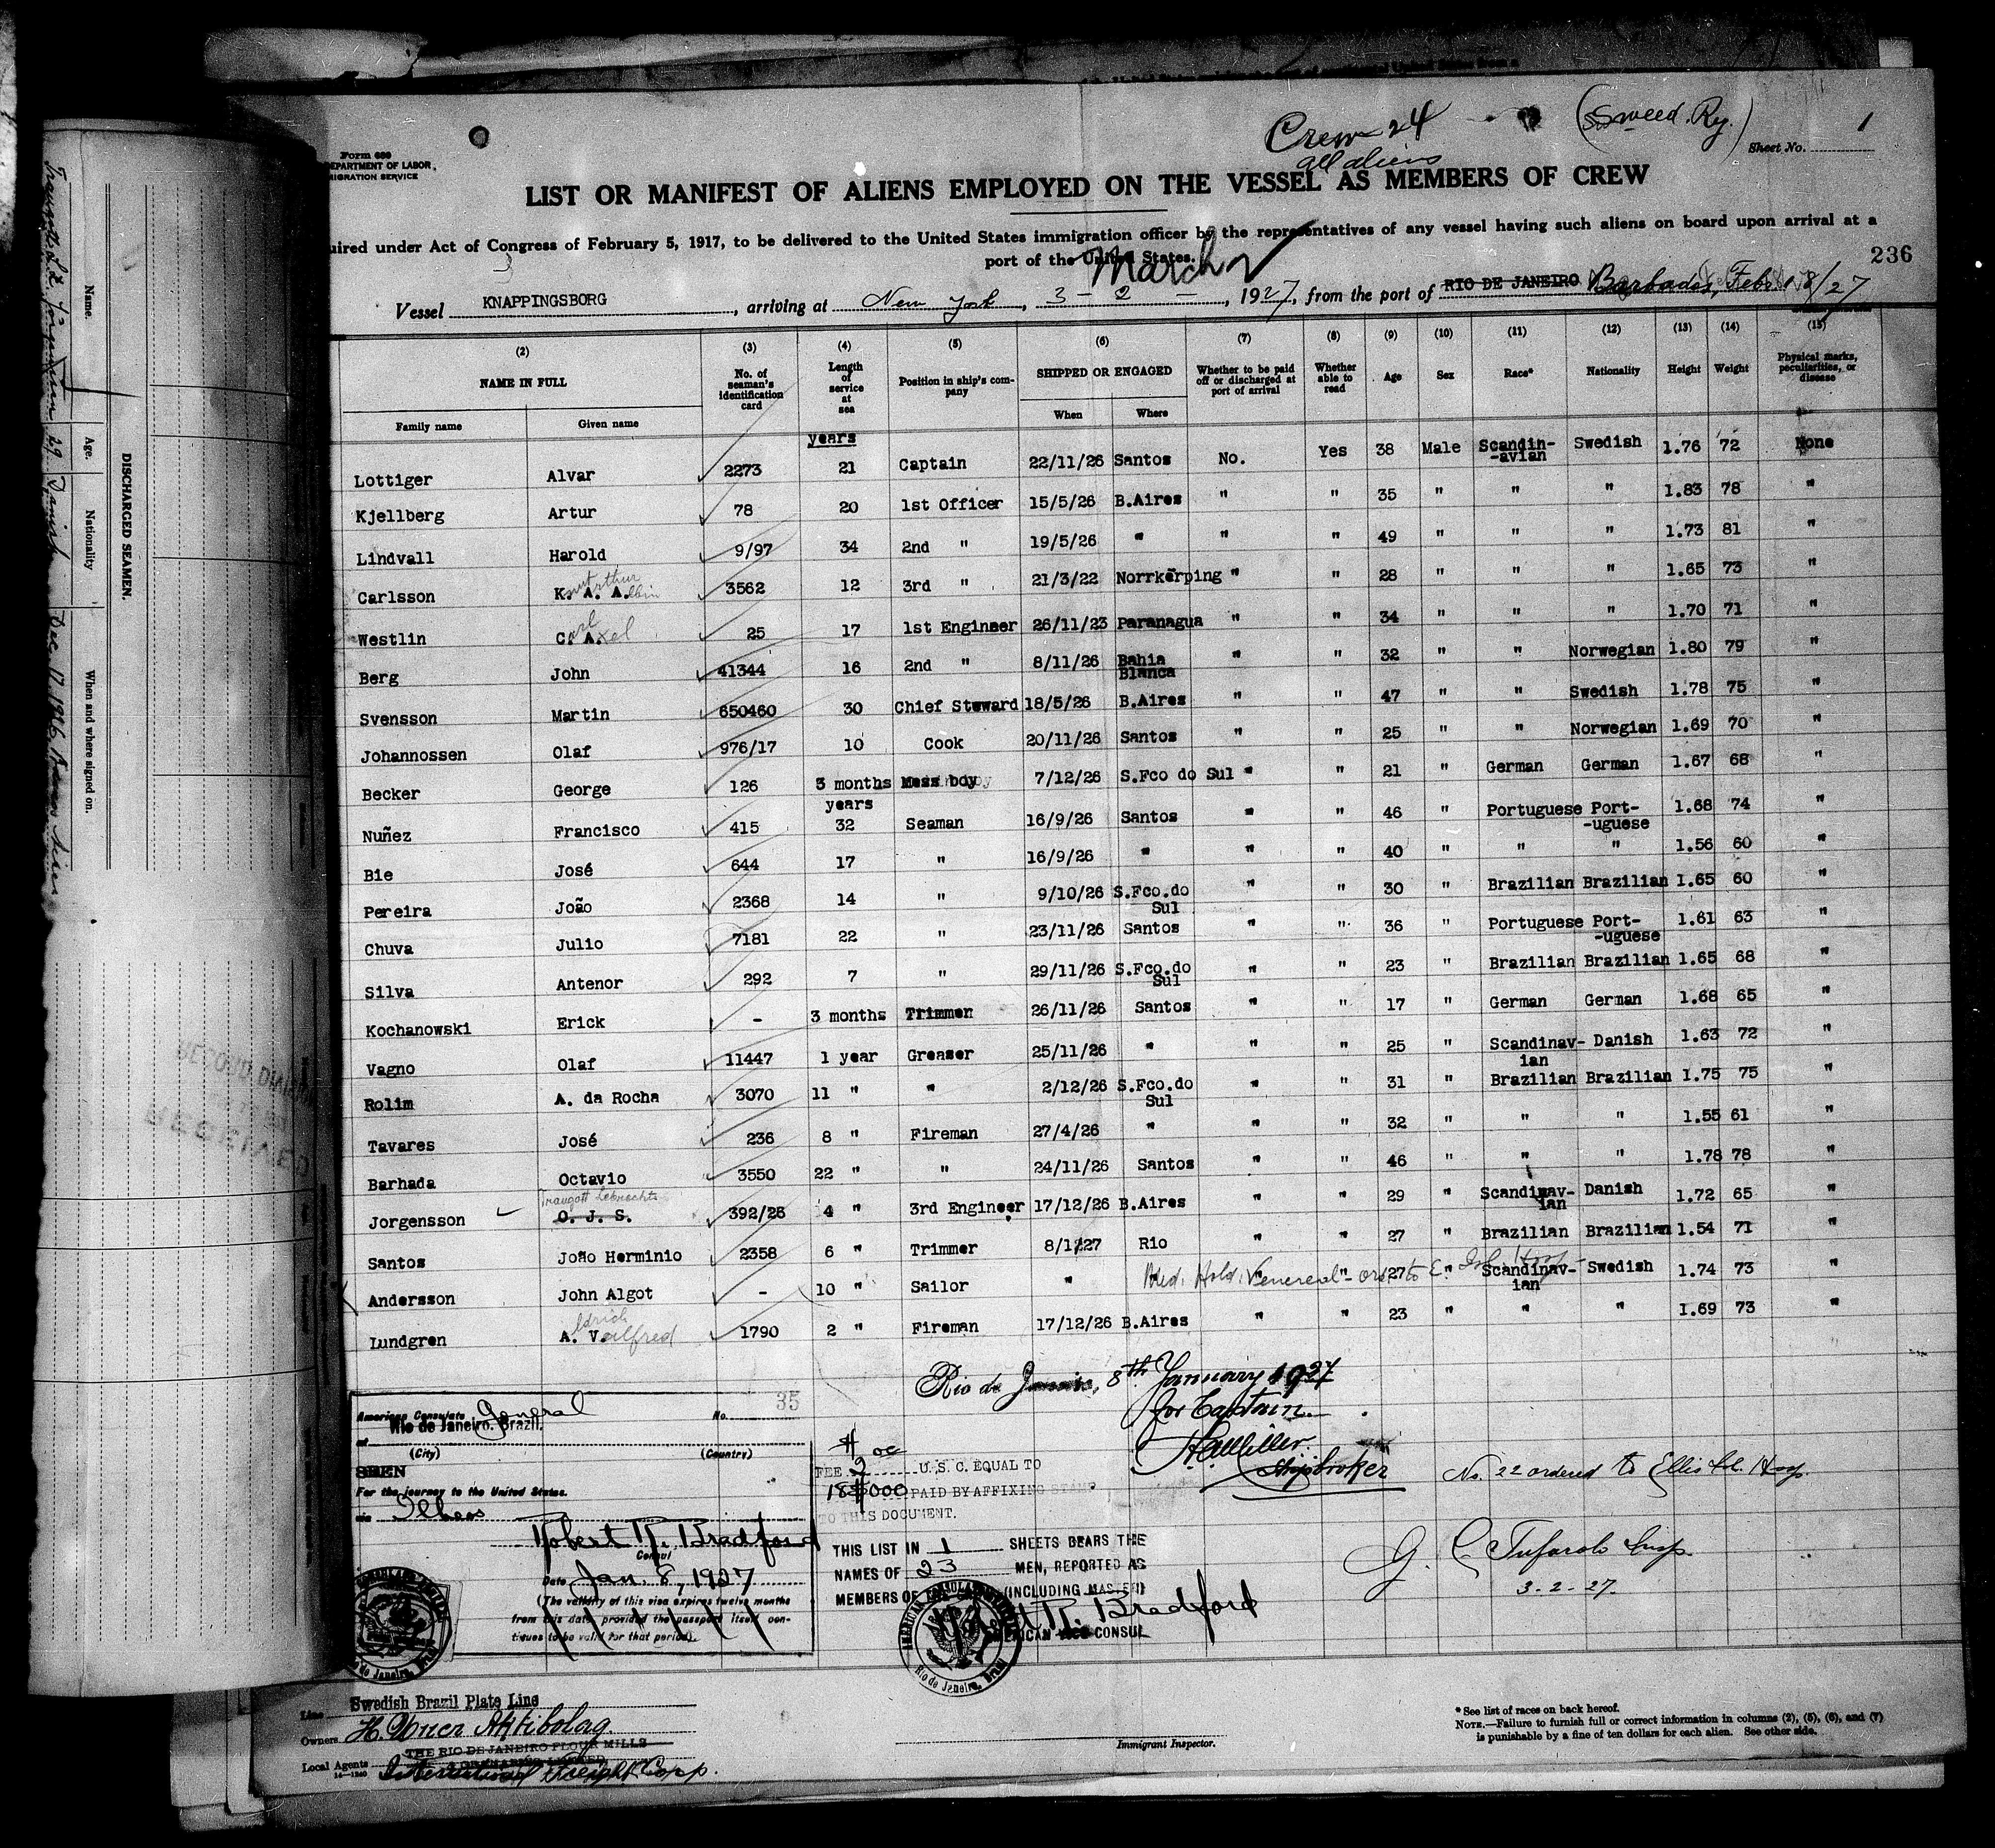 Crew 24
all aliens
(Sweed. Ry.)
Sheet No. 1
Form 680
DEPARTMENT OF LABOR
MIGRATION SERVICE
LIST OR MANIFEST OF ALIENS EMPLOYED ON THE VESSEL AS MEMBERS OF CREW
uired under Act of Congress of February 5, 1917, to be delivered to the United States immigration officer by the representatives of any vessel having such aliens on board upon arrival at a
port of the United States.
March
236
Vessel KNAPPINGSBORG, arriving at New York, 3-2-, 1927, from the port of RIO DE JANEIRO Barbados, Febr. 18/27
(2) (3) (4) (5) (6) (7) (8) (9) (10) (11) (12) (13) (14) (15)
NAME IN FULL No. of seaman's identification card Length of service at sea Position in ship's company SHIPPED OR ENGAGED Whether to be paid off or discharged at port of arrival Whether able to read Age Sex Race* Nationality Height Weight Physical marks, peculiarities, or disease
Family name Given name When Where
years
Lottiger Alvar 2273 21 Captain 22/11/26 Santos No. Yes 38 Male Scandin-avian Swedish 1.76 72 None
Kjellberg Artur 78 20 1st Officer 15/5/26 B.Aires " " 35 " " " 1.83 78 "
Lindvall Harold 9/97 34 2nd " 19/5/26 " " " 49 " " " 1.73 81 "
Carlsson K. A. A. 3562 12 3rd " 21/3/22 Norrkerping " " 28 " " " 1.65 73 "
Westlin C. A. 25 17 1st Engineer 26/11/23 Paranagua " " 34 " " " 1.70 71 "
Berg John 41344 16 2nd " 8/11/26 Bahia Blanca " " 32 " " Norwegian 1.80 79 "
Svensson Martin 650460 30 Chief Steward 18/5/26 B.Aires " " 47 " " Swedish 1.78 75 "
Johannossen Olaf 976/17 10 Cook 20/11/26 Santos " " 25 " " Norwegian 1.69 70 "
Becker George 126 3 months Mess boy 7/12/26 S.Fco do Sul " " 21 " German German 1.67 68 "
years
Nuñez Francisco 415 32 Seaman 16/9/26 Santos " " 46 " Portuguese Port-uguese 1.68 74 "
Bie José 644 17 " 16/9/26 " " " 40 " " " 1.56 60 "
Pereira João 2368 14 " 9/10/26 S.Fco.do Sul " " 30 " Brazilian Brazilian 1.65 60 "
Chuva Julio 7181 22 " 23/11/26 Santos " " 36 " Portuguese Port-uguese 1.61 63 "
Silva Antenor 292 7 " 29/11/26 S.Fco.do Sul " " 23 " Brazilian Brazilian 1.65 68 "
Kochanowski Erick - 3 months Trimmer 26/11/26 Santos " " 17 " German German 1.68 65 "
Vagno Olaf 11447 1 year Greaser 25/11/26 " " " 25 " Scandinav-ian Danish 1.63 72 "
Rolim A. da Rocha 3070 11 " " 2/12/26 S.Fco.do Sul " " 31 " Brazilian Brazilian 1.75 75 "
Tavares José 236 8 " Fireman 27/4/26 " " " 32 " " " 1.55 61 "
Barhada Octavio 3550 22 " " 24/11/26 Santos " " 46 " " " 1.78 78 "
Traugott Lebrechts
Jorgensson O. J. S. 392/26 4 " 3rd Engineer 17/12/26 B.Aires " " 29 " Scandinav-ian Danish 1.72 65 "
Santos João Herminio 2358 6 " Trimmer 8/1/27 Rio " " 27 " Brazilian Brazilian 1.54 71 "
Med. Hold: Venereal - ord. to E. Isl. Hosp
Andersson John Algot - 10 " Sailor " " " " 27 " Scandinav-ian Swedish 1.74 73 "
Lundgren A. V. Alfred 1790 2 " Fireman 17/12/26 B.Aires " " 23 " " " 1.69 73 "
Rio de Janeiro, 8th January 1927
for Captain.
Shipbroker
No. 22 ordered to Ellis Isl. Hosp.
3-2-27.
American Consulate General No. 35
at Rio de Janeiro, Brazil.
(City) (Country)
SEEN
For the journey to the United States.
via Ilheos
Robert R. Bradford
Consul
Date Jan. 8, 1927
(The validity of this visa expires twelve months
from this date provided the passport itself con-
tinues to be valid for that period).
FEE $2.00 U.S.C. EQUAL TO
18$000 PAID BY AFFIXING STAMP
TO THIS DOCUMENT.
THIS LIST IN 1 SHEETS BEARS THE
NAMES OF 23 MEN, REPORTED AS
MEMBERS OF (INCLUDING MASTER)
R. Bradford
AMERICAN VICE CONSUL
Line Swedish Brazil Plate Line
Owners
Local Agents THE RIO DE JANEIRO FLOUR MILLS
International Freight Corp.
Immigrant Inspector.
* See list of races on back hereof.
NOTE.—Failure to furnish full or correct information in columns (2), (5), (6), and (7)
is punishable by a fine of ten dollars for each alien. See other side.
DISCHARGED SEAMEN.
Name. Age. Nationality When and where signed on.
29 Danish Dec. 17. 1926, Buenos Aires